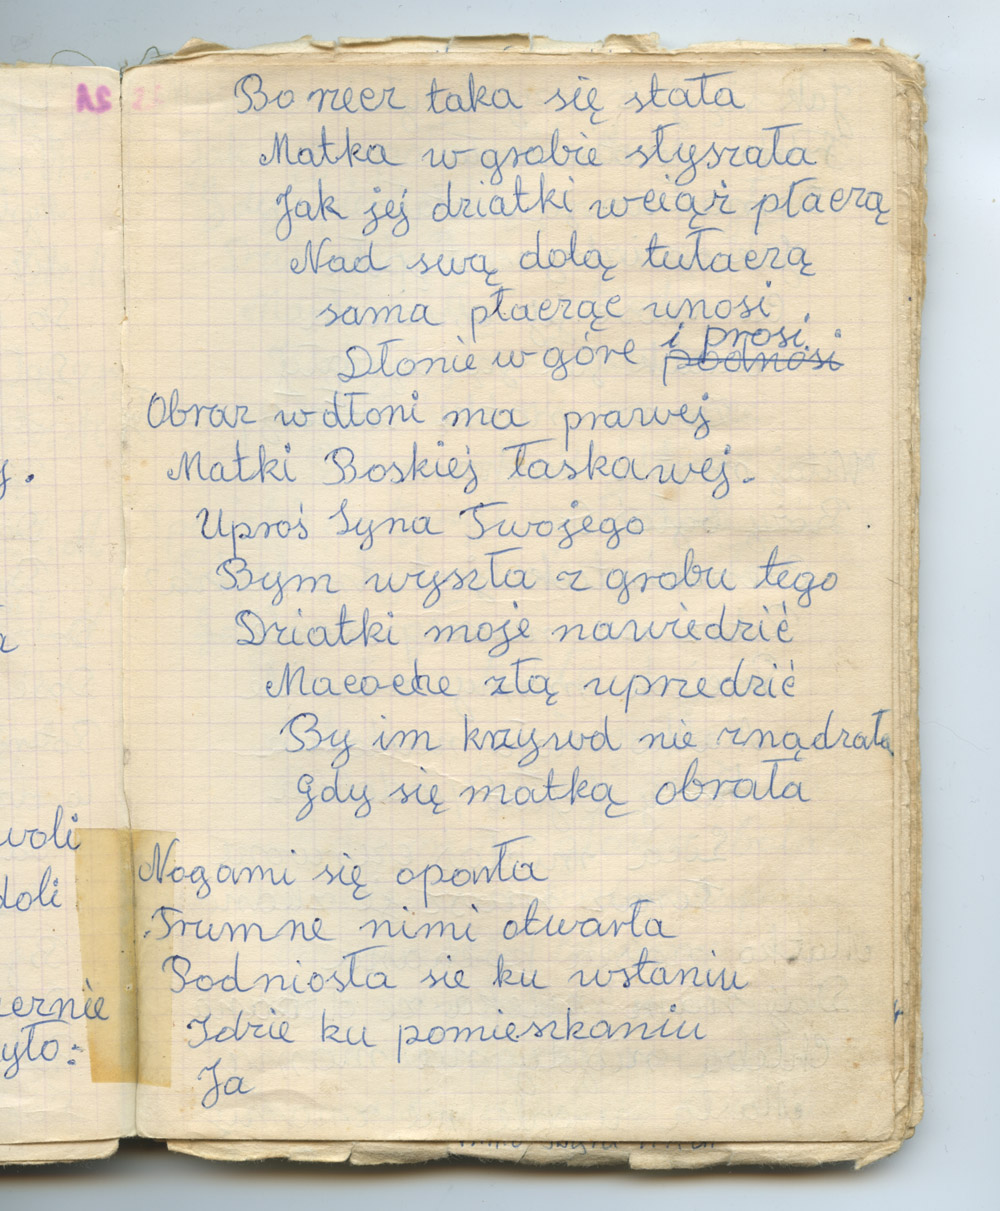 21
Bo rzecz taka się stała
Matka w grobie słyszała
Jak jej dziatki wciąż płaczą
Nad swą dolą tułaczą
sama płacząc unosi
i prosi.
Dłonie w górę podnosi
Obraz w dłoni ma prawej
Matki Boskiej Łaskawej.
Uproś Syna Twojego
Bym wyszła z grobu tego
Dziatki moje nawiedzić
Macoche złą uprzedzić
By im krzywd nie rządzała
Gdy się matką obrała
Nogami się oparła
Trumne nimi otwarła
Podniosła sie ku wstaniu
Idzie ku pomieszkaniu
Ja
woli
doli
yło: